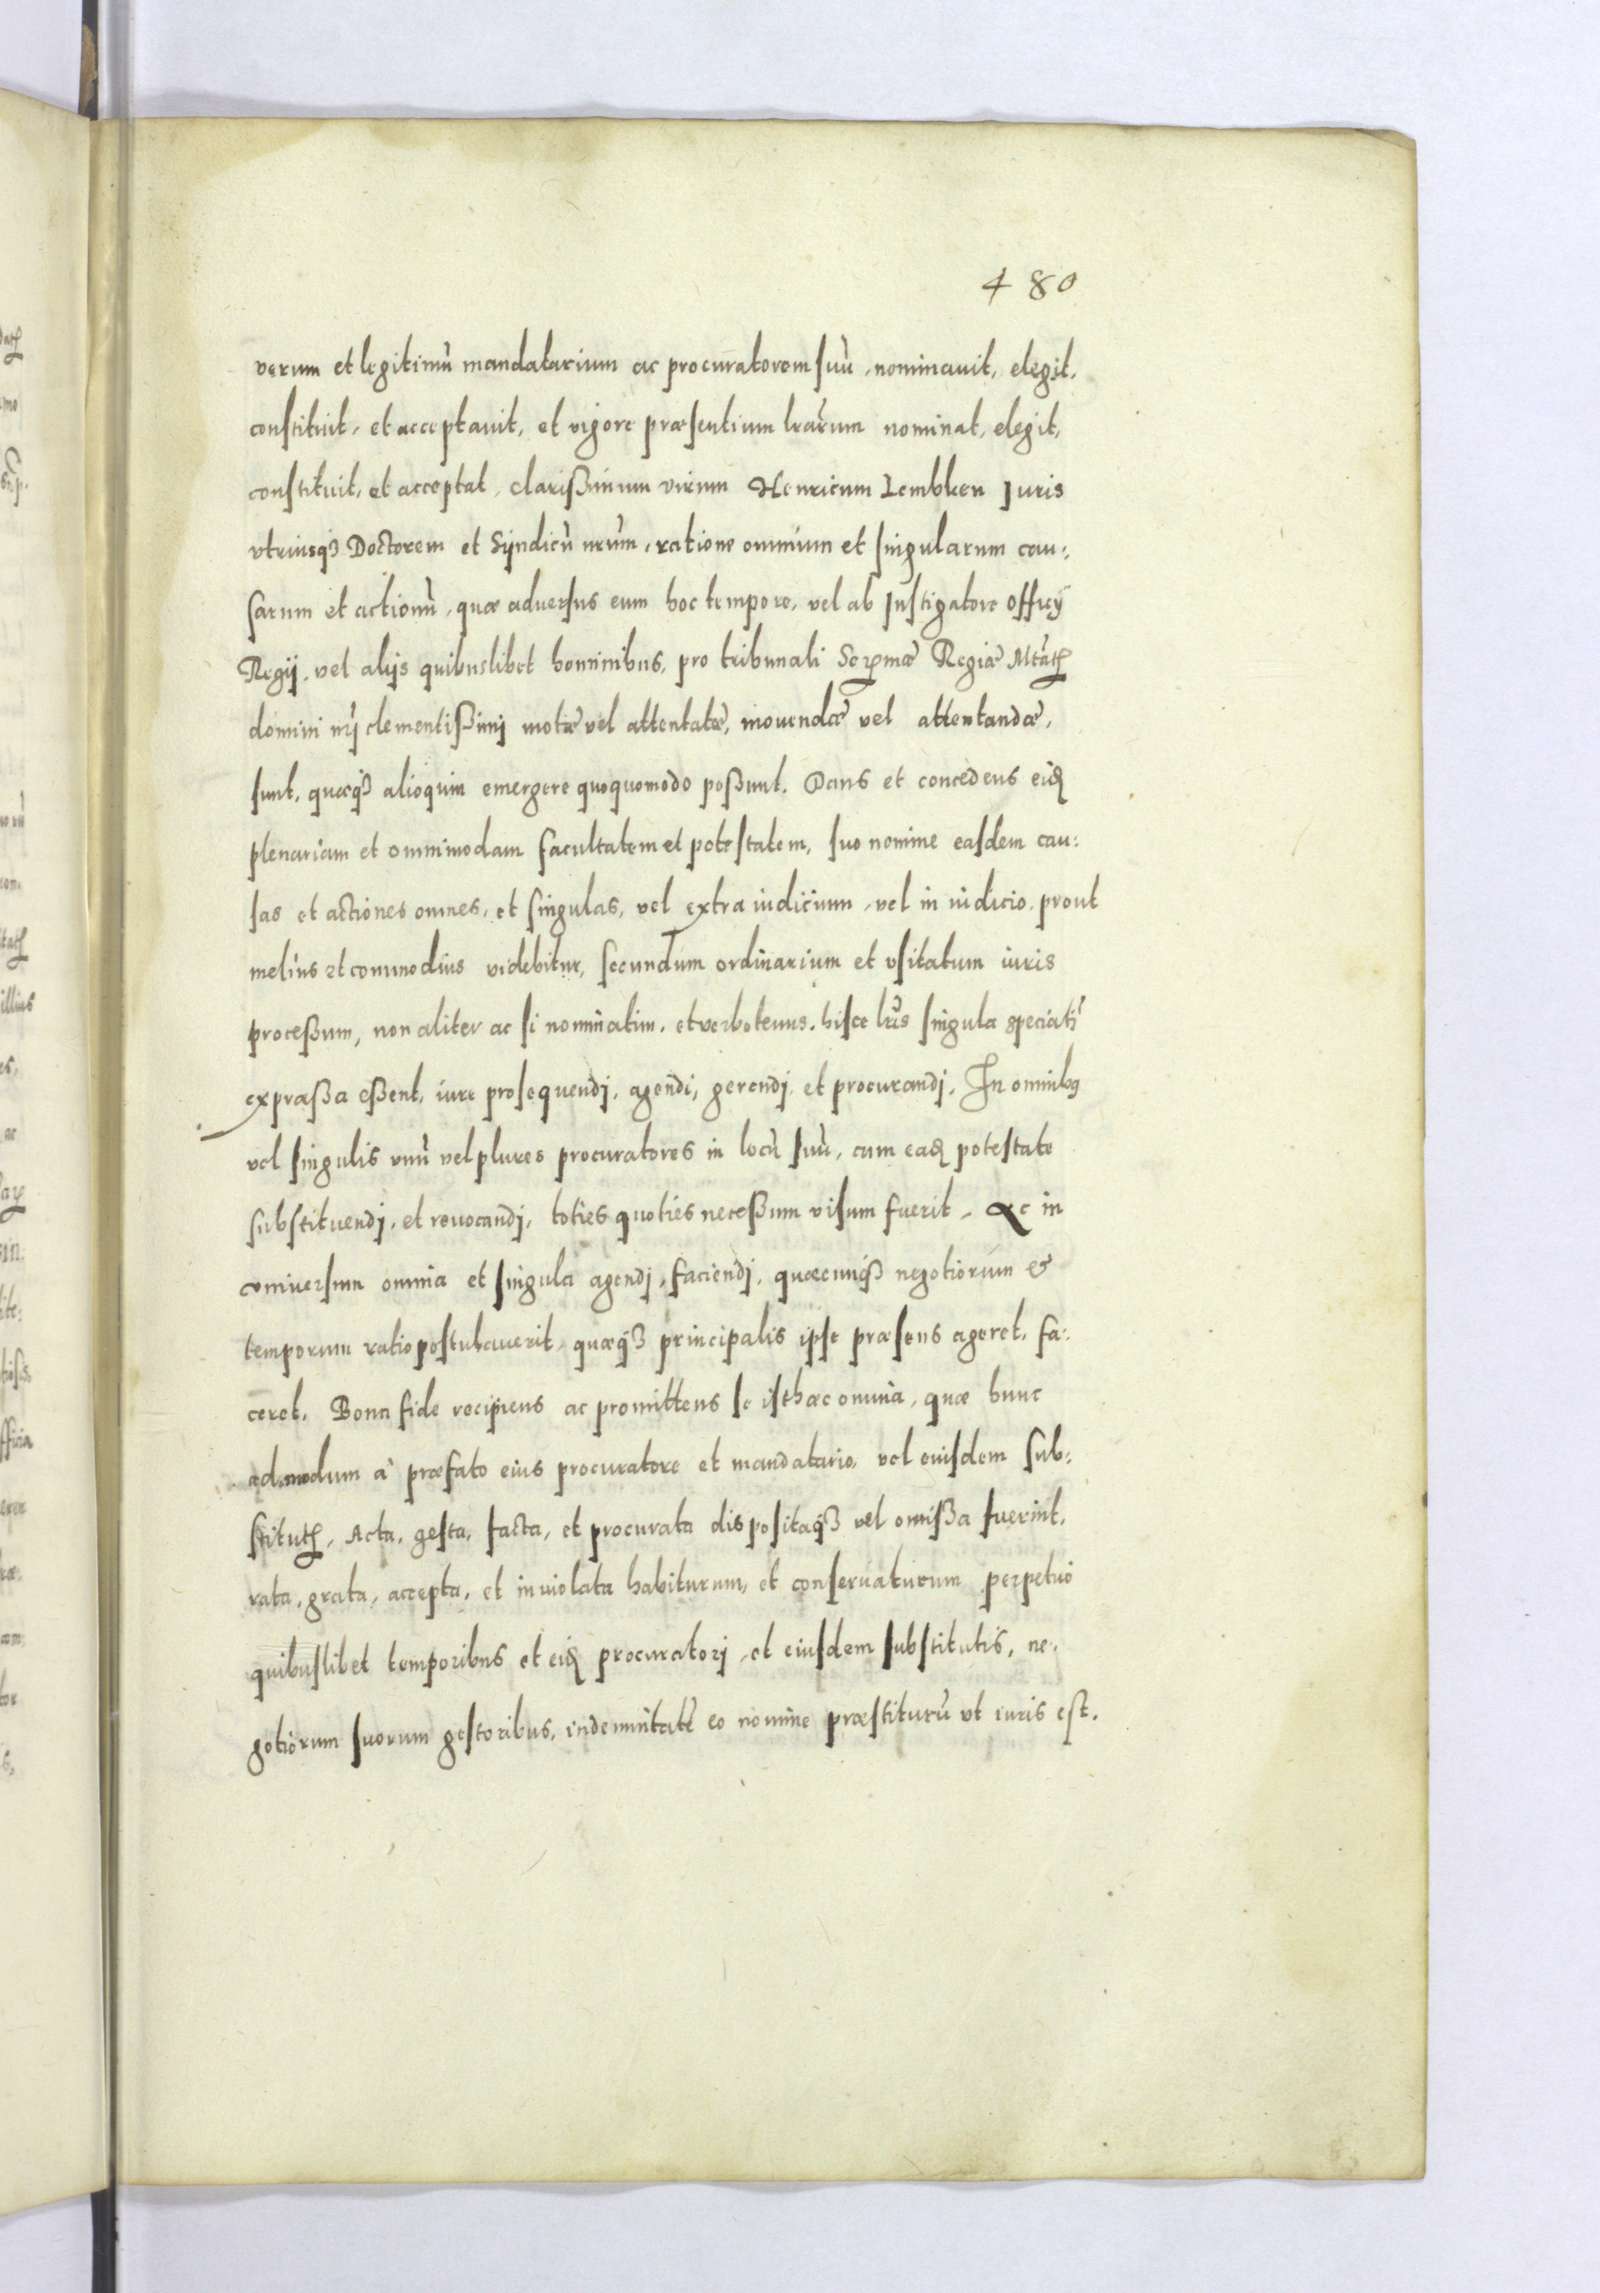 480
verum et legitimũ mandatarium ac procuratorem suũ, nominauit, elegit,
constituit, et acceptauit, et vigore præsentium lrarum nominat, elegit,
constituit, et acceptat, clarißimum virum Henricum Lembken Juris
vtriusqȝ Doctorem et Syndicũ nrum, ratione omnium et singularum cau:
sarum et actionũ, quæ aduersus eum hoc tempore, vel ab Instigatore Officÿ
Regij, vel alijs quibuslibet hominibus, pro tribunali Sermæ Regiæ Mtatis
domini nrj clementißimj motæ vel attentatæ, mouendæ vel attentandæ,
sunt, quæqȝ alioquin emergere quoquomodo poßunt. Dans et concedens eid
plenariam et omnimodam facultatem et potestatem, suo nomine easdem cau:
sas et actiones omnes, et singulas, vel extra iudicium, vel in iudicio, prout
melius et commodius videbitur, secundum ordinarium et vsitatum iuris
proceßum, non aliter ac si nominatim, et verbotenus, hisce lris singula speciatĩ
expræßa eßent, iure prosequendj, agendj, gerendj, et procurandj, In omnibus
vel singulis vnũ vel plures procuratores in locũ suũ, cum ead potestate
substituendj, et reuocandj, toties quoties neceßum visum fuerit, Ac in
vniuersum omnia et singula agendj, faciendj, quæcunqȝ negotiorum &
temporum ratio postulauerit, quæqȝ principalis ipse præsens ageret, fa:
ceret. Bona fide recipiens ac promittens se isthæc omnia, quæ hunc
ad modum à præfato eius procuratore et mandatario, vel euisdem sub:
stitutis, Acta, gesta, facta, et procurata dispositaqȝ vel omißa fuerint,
rata, grata, accepta, et inuiolata habiturum, et conseruaturum perpetuò
quibuslibet temporibus et eid procuratorj, et eiusdem substitutis, ne:
gotiorum suorum gestoribus, indemnitatẽ eo nomine præstiturũ vt iuris est.